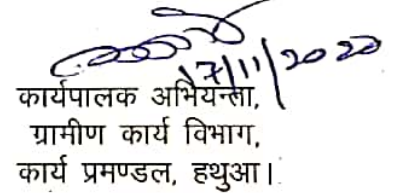 17/11/2020
कार्यपालक अभियन्ता,
ग्रामीण कार्य विभाग,
कार्य प्रमण्डल, हथुआ।